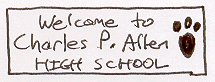 Welcome to
Charles P. Allen
HIGH SCHOOL